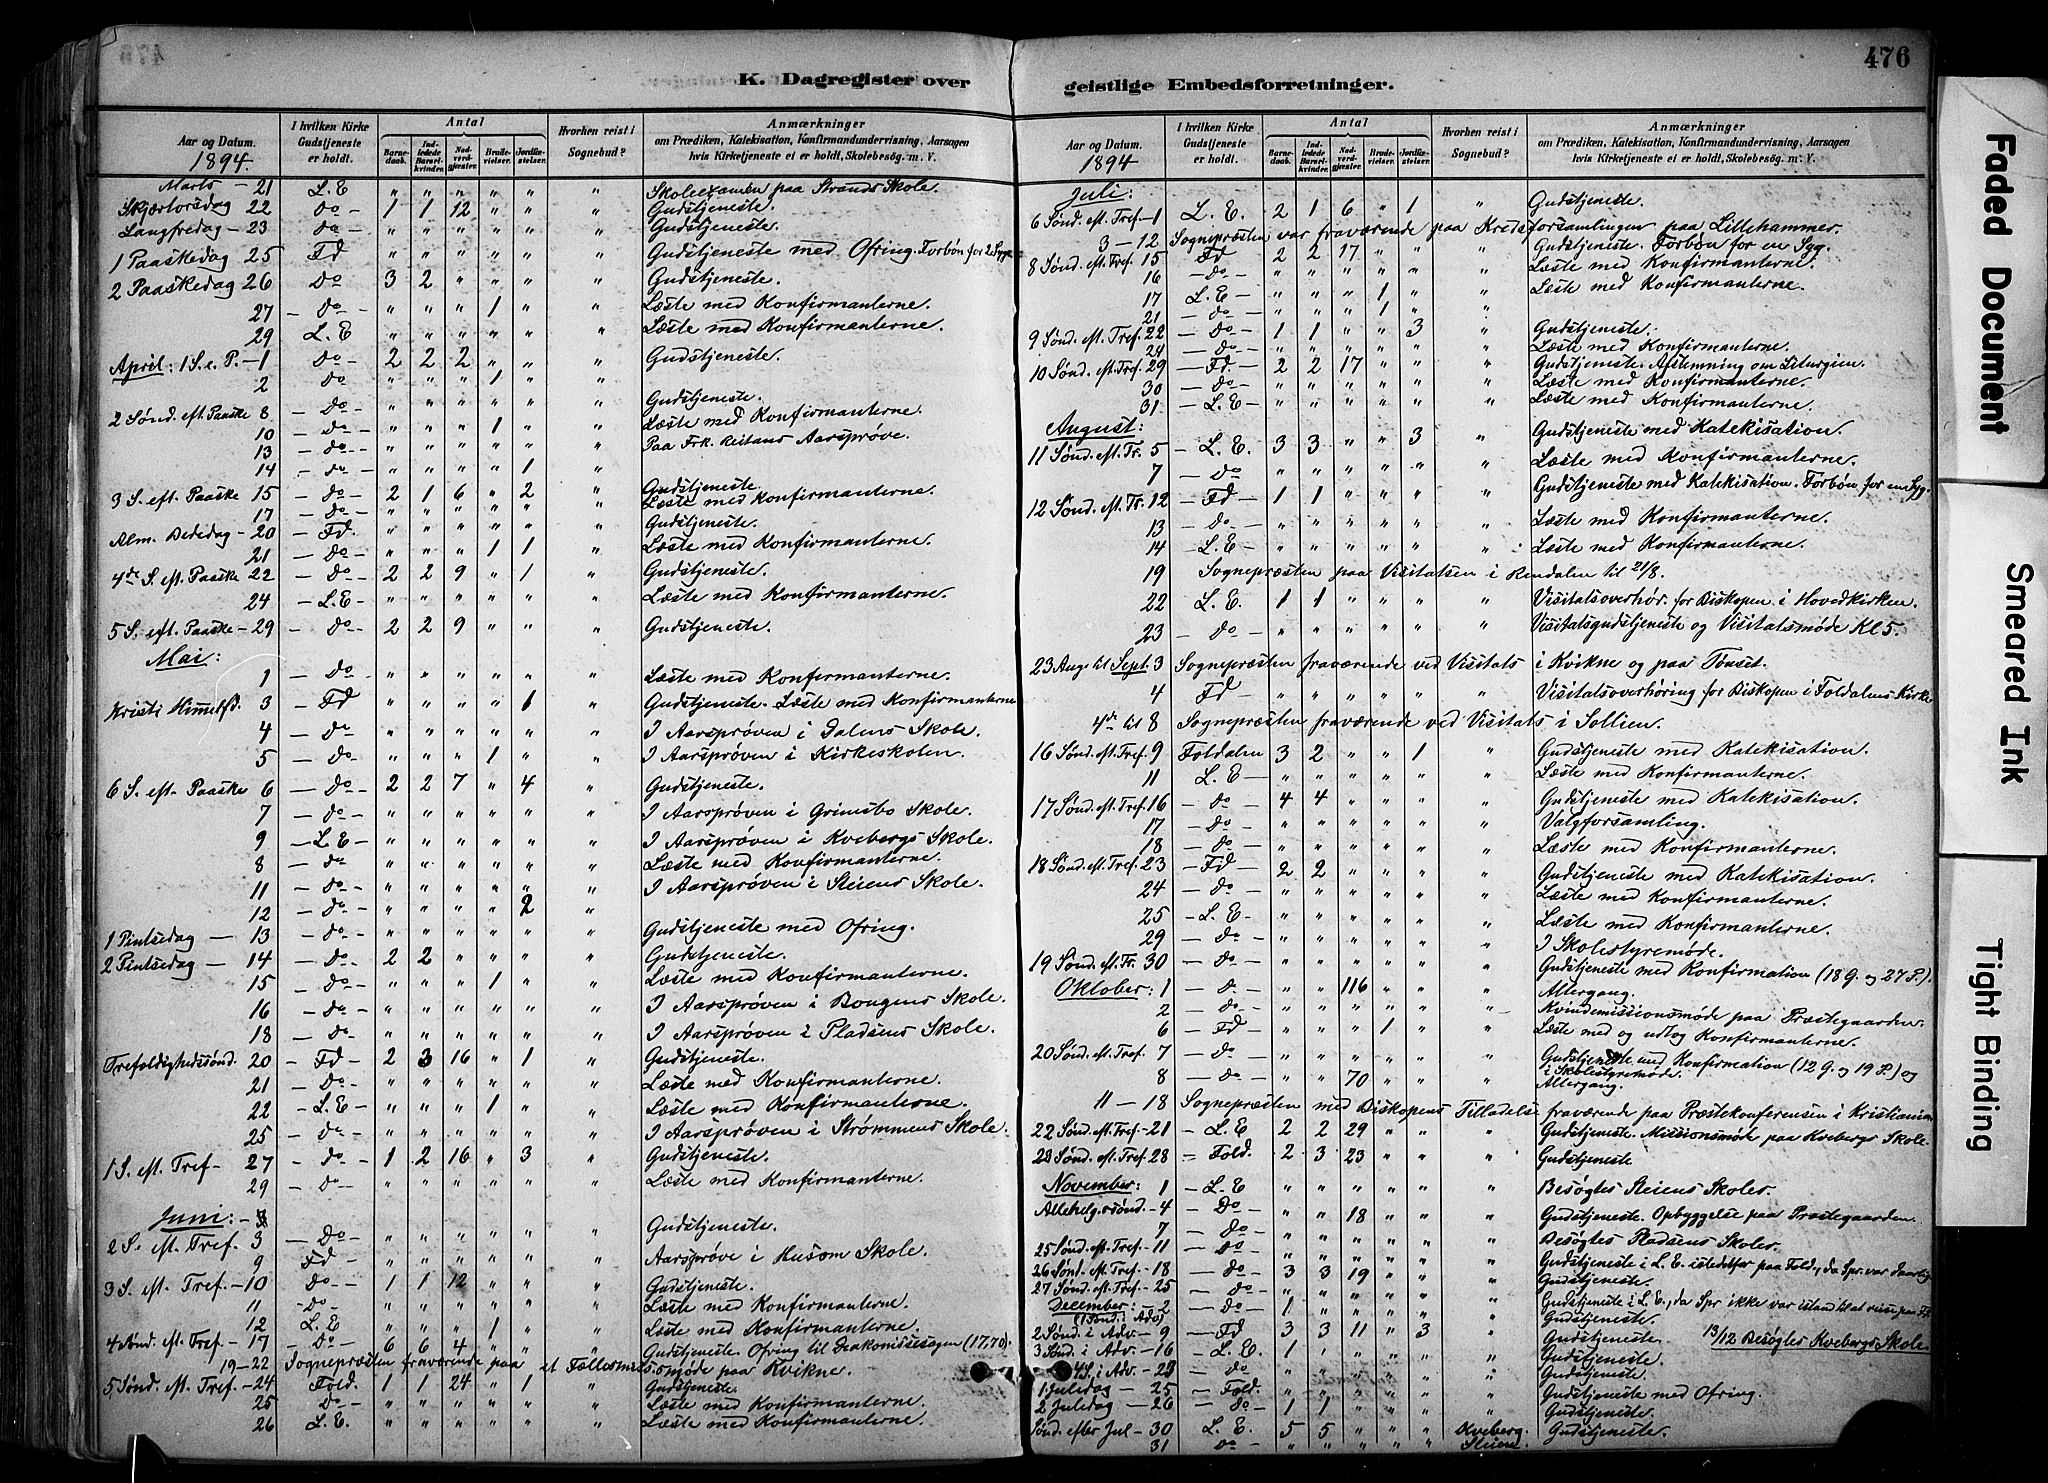 476
K. Dagregister over geistlige Embedsforretninger.
Aar og Datum. 1894. | I hvilken Kirke Gudstjeneste er holdt. | Antal | Barnedaab. | Indledede Barselkvinder. | Nadverdgjester. | Brudevielser. | Jordfæstelser. | Hvorhen reist i Sognebud? | Anmærkninger om Prædiken, Katekisation, Konfirmandundervisning, Aarsagen hvis Kirketjeneste ei er holdt, Skolebesøg. m. V.
Marts – 21 L. E " " " " " " Skoleexamen paa Strands Skole.
Skjærtorsdag 22 do 1 1 12 " " " Gudstjeneste.
Langfredag – 23 do " " " " " " Gudstjeneste.
1 Paaskedag 25 Fd " " " " " " Gudstjeneste med Ofring. Forbøn for 2 Syge
2 Paaskedag 26 Do 3 2 " " " " Gudstjeneste.
27 – do " " " 1 " " Læste med Konfirmanterne.
29 L. E " " " " " " Læste med Konfirmanterne.
April: 1 S. e. P. – 1 Do 2 2 2 " " " Gudstjeneste.
2 Do " " " 1 " "
2 Sønd. eft Paaske 8 – Do " " " " " " Gudstjeneste.
10 – Do " " " 1 " " Læste med Konfirmanterne.
13 – do " " " " " " Paa Frk. Reitans Aarsprøve.
14 – do " " " " 1 "
3 S. eft. Paaske 15 – Do 2 1 6 " 2 " Gudstjeneste.
17 – Do " " " " " " Læste med Konfirmanterne.
Alm. Bededag – 20 – Fd. " " " " " " Gudstjeneste.
21 – Do " " " 1 1 " Læste med Konfirmanterne.
4de S. eft. Paaske 22 – Do 2 2 9 " 1 " Gudstjeneste.
24 – L. E " " " " " " Læste med Konfirmanterne.
5 S. eft Paaske – 29 – Do 2 2 9 " " " Gudstjeneste.
Mai:
1 – Do " " " " " " Læste med Konfirmanterne.
Kristi Himmelfd. 3 – Fd " " " " 1 " Gudstjeneste. Læste med Konfirmanterne
4 – Do " " " " " " I Aarsprøven i Dalens Skole.
5 – Do " " " 1 " " I Aarsprøven i Kirkeskolen.
6 S. eft. Paaske 6 – Do 2 2 7 " 4 " Gudstjeneste.
7 – do " " " " " " I Aarsprøven i Grimsbo Skole.
9 – L E " " " " " " I Aarsprøven i Kvebergs Skole.
8 – do " " " " " " Læste med Konfirmanterne.
11 – do " " " " " " I Aarsprøven i Steiens Skole.
12 – do " " " " 2 "
1 Pintsedag – 13 – do " " " " " " Gudstjeneste med Ofring.
2 Pintsedag – 14 – Do 2 2 " " " " Gudstjeneste.
15 – Do " " " 1 " " Læste med Konfirmanterne.
16 – do " " " " " " I Aarsprøven i Bougens Skole.
18 – Do " " " " " " I Aarsprøven i Pladsens Skole.
Trefoldighedssønd. 20 – Fd 2 3 16 " 1 " Gudstjeneste.
21 – Do " " " " " " Læste med Konfirmanterne.
22 – L. E " " " 1 " " Læste med Konfirmanterne.
25 – Do " " " " " " I Aarsprøven i Strømmens Skole.
1 S. eft. Tref – 27 – Do 1 2 16 " 3 " Gudstjeneste.
29 – Do " " " " " " Læste med Konfirmanterne.
Juni:
2 S. eft Tref. 3 – Do " " " " " " Gudstjeneste.
9 Fd " " " " " " Aarsprøve i Husom Skole.
3 S. eft. Tref. – 10 Do 1 1 12 " " " Gudstjeneste.
11 Do " " " " " " Læste med Konfirmanterne.
12 L. E " " " 1 " " Læste med Konfirmanterne.
4 Sønd. eft. Tref – 17 – Do 6 6 4 " " " Gudstjeneste. Ofring til Indremissionssagen (17,70).
19–22 Sognepræsten fraværende paa et Fællesmissionsmøde paa Kvikne.
5 Sønd. eft. Tref – 24 Fold. 1 1 24 " 1 " Gudstjeneste.
25 Do " " " " " " Læste med Konfirmanterne.
26 L. E. " " " " " " Læste med Konfirmanterne.
Aar og Datum. 1894 | I hvilken Kirke Gudstjeneste er holdt. | Antal | Barnedaab. | Indledede Barselkvinder. | Nadverdgjester. | Brudevielser. | Jordfæstelser. | Hvorhen reist i Sognebud? | Anmærkninger om Prædiken, Katekisation, Konfirmandundervisning, Aarsagen hvis Kirketjeneste ei er holdt, Skolebesøg. m. V.
Juli:
6 Sønd. eft. Tref – 1 L. E. 2 1 6 " 1 " Gudstjeneste.
3 – 12 Sognepræsten var fraværende paa Kredsforsamlingen paa Lillehammer.
8 Sønd. eft. Tref. 15 Fd 2 2 17 " " " Gudstjeneste. Forbøn for en Syg.
16 – do " " " " " " Læste med Konfirmanterne.
17 L. E – " " " 1 " " Læste med Konfirmanterne.
21 – do " " " 1 " "
9 Sønd. eft Tref – 22 – Do 1 1 " " 3 " Gudstjeneste.
24 – do " " " " " " Læste med Konfirmanterne.
10 Sønd. eft. Tref. 29 – Fd. 2 2 17 " " " Gudstjeneste. Afstemning om Liturgien.
30 – Do " " " " " " Læste med Konfirmanterne.
31 – L. E – " " " " " " Læste med Konfirmanterne.
August:
11 Sønd. eft. Tr. 5 – L. E. 3 3 " " 3 " Gudstjeneste med Katekisation.
7 – Do " " " " " " Læste med Konfirmanterne.
12 Sønd. eft. Tr. 12 – Fd 1 1 " " " " Gudstjeneste med Katekisation. Forbøn for en Syg.
13 – Do " " " " " " Læste med Konfirmanterne.
14 – L. E – " " " " " " Læste med Konfirmanterne.
19 Sognepræsten paa Visitatsen i Rendalen til 21/8.
22 L. E. 1 1 " " " " Visitatsoverhør. for Biskopen i Hovedkirken.
23 – Do " " " " " " Visitatsgudstjeneste og Visitatsmøde Kl 5.
23 Aug til Sept. 3 Sognepræsten fraværende ved Visitats i Kvikne og paa Tønset.
4 Fd " " " " " " Visitatsoverhøring for Biskopen i Foldalens Kirke
4de til 8 Sognepræsten fraværende ved Visitats i Sollien.
16 Sønd. eft. Tref. 9 Foldalen 3 2 " " 1 " Gudstjeneste med Katekisation.
11 L. E – " " " " " " Læste med Konfirmanterne.
17 Sønd. eft. Tref. 16 – do 4 4 " " " " Gudstjeneste med Katekisation.
17 – do " " " " " " Valgforsamling.
18 – Do " " " " " " Læste med Konfirmanterne.
18 Sønd. eft. Tref. – 23 – Fd 2 2 " " " " Gudstjeneste med Katekisation.
24 – Do " " " " " " Læste med Konfirmanterne.
25 – L. E. " " " " " " Læste med Konfirmanterne.
29 – Do " " " " " " I Skolestyremøde.
19 Sønd. eft. Tr. 30 – Do " " " " " " Gudstjeneste med Konfirmation (18 G. og 27 P.).
Oktober: 1 – D. " " 116 " " " Altergang.
2 – Do " " " " " " Kvindemissionsmøde paa Præstegaarden.
6 – Fd " " " 1 " " Læste med og udtog Konfirmanterne.
20 Sønd. eft. Tref. 7 – Do " " " " " " Gudstjeneste med Konfirmation (12 G. og 19 P.) og i Skolestyremøde.
8 – Do " " 70 " " " Altergang.
11 – 18 Sognepræsten med Biskopens Tilladelse fraværende paa Præstekonferensen i Kristiania
22 Sønd. eft. Tref – 21 – L. E 2 2 29 " " " Gudstjeneste. Missionsmøde paa Kvebergs Skole.
23 Sønd. eft. Tref 28 – Fold. 2 3 23 " " " Gudstjeneste
November: 1 – L. E " " " " " " Besøgtes Steiens Skoler.
Allehelg.sønd. – 4 – Do " " 18 " " " Gudstjeneste. Opbyggelse paa Præstegaarden.
7 – Do " " " " " " Besøgtes Pladsens Skoler.
25 Sønd. eft. Tref – 11 – Do " " " " " " Gudstjeneste i L. E. istedetfor paa Fold., da Spr. var daarlig
26 Sønd. eft. Tref – 18 – Do 3 3 19 " " " Gudstjeneste.
27 Sønd. eft Tref – 25 – Do " " " " " " Gudstjeneste i L. E., da Spr ikke var istand til at reise paa Fd.
December: – 2 – Do 1 " " " " " Gudstjeneste.
(1 Sønd. i Adv.)
2 Sønd. i Adv – 9 – Fd 3 3 11 " 3 " Gudstjeneste. 13/12 Besøgtes Kvebergs Skole.
3 Sønd. i Adv. – 16 – L. E. 1 " " " " " Gudstjeneste.
4 S. i Adv. – 23 – Do " " " " " " Gudstjeneste.
1 Juledag – 25 – Fold. " " " " " " Gudstjeneste med Ofring.
2 Juledag – 26 – Do 1 1 " " " " Gudstjeneste.
Sønd. efter Jul – 30 L. E. 5 5 " " " Kveberg. Gudstjeneste.
31 Do " " " " " Steien.
Faded Document
Smeared Ink
Tight Binding